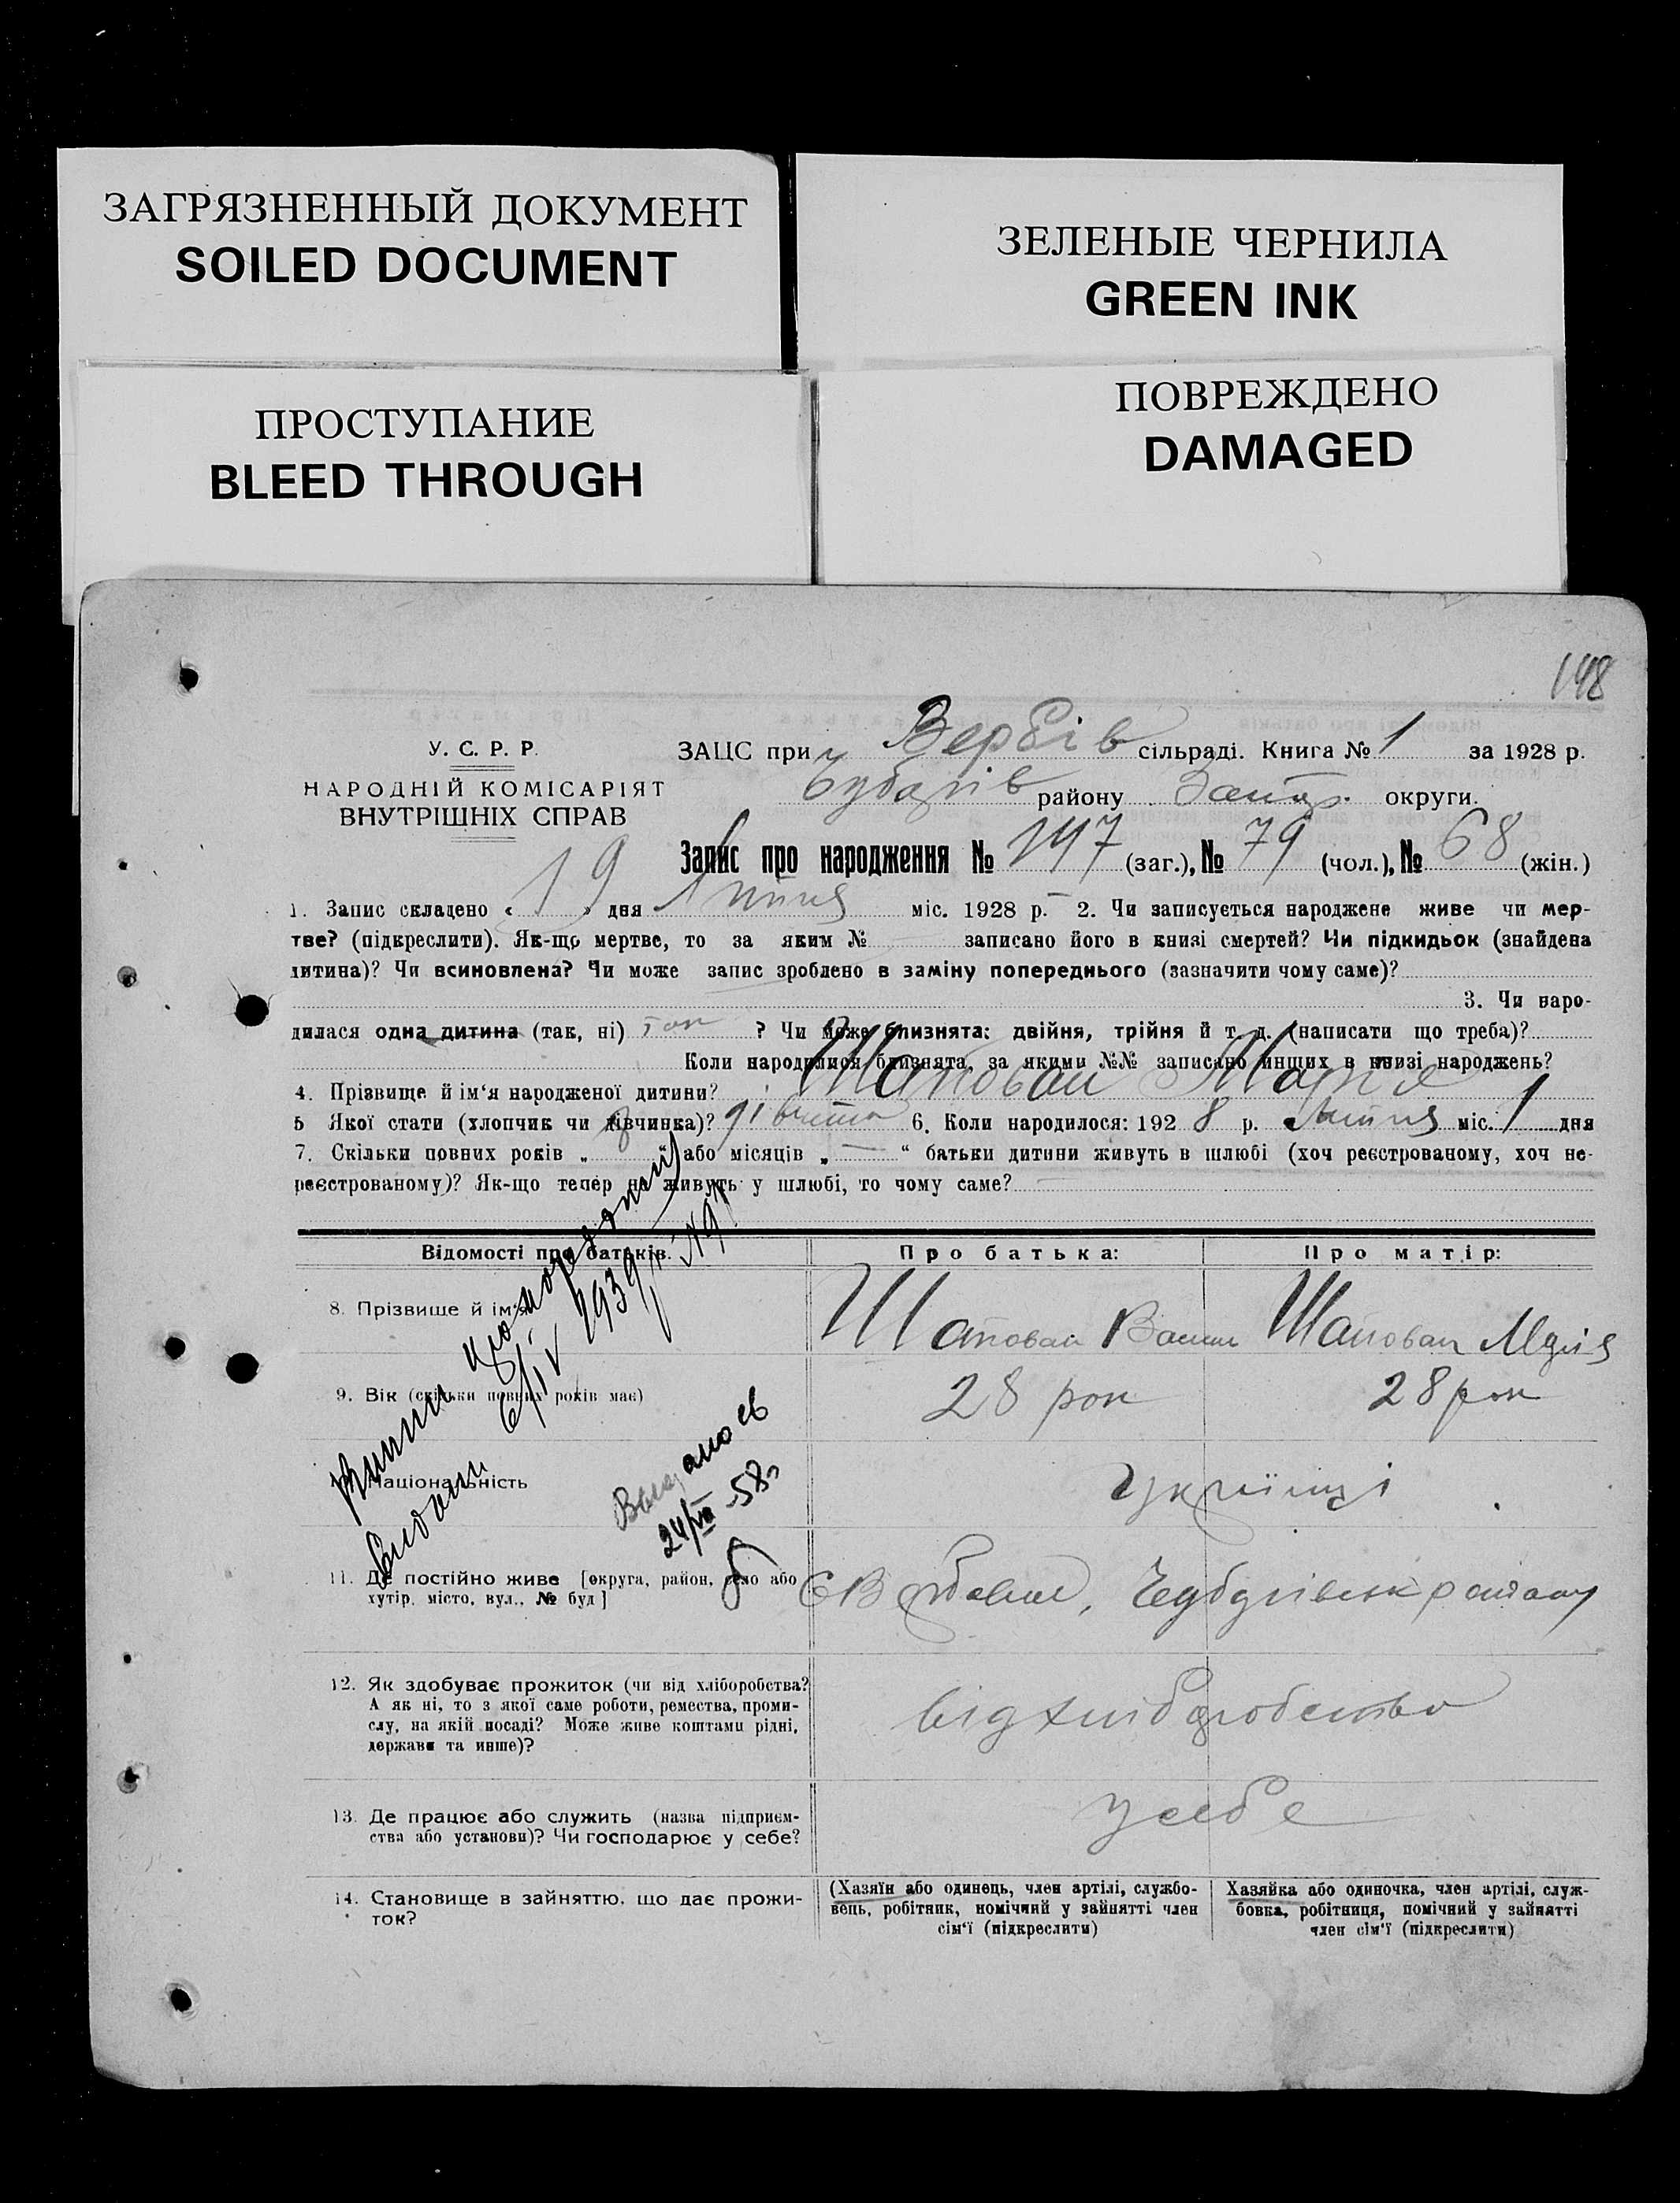 ЗАГРЯЗНЕННЫЙ ДОКУМЕНТ
SOILED DOCUMENT
ЗЕЛЕНЫЕ ЧЕРНИЛА
GREEN INK
ПРОСТУПАНИЕ
BLEED THROUGH
ПОВРЕЖДЕНО
DAMAGED
148
У. С. Р. Р.
НАРОДНІЙ КОМІСАРІЯТ
ВНУТРІШНІХ СПРАВ
ЗАЦС при Вербів сільраді. Книга № 1 за 1928 р.
району Запор. округи.
Запис про народження № 147 (заг.), № 79 (чол.), № 68 (жін.)
1. Запис складено « 19 » дня Липня міс. 1928 р. 2. Чи записується народжене живе чи мер-
тве? (підкреслити). Як-що мертве, то за яким № записано його в книзі смертей? Чи підкидьок (знайдена
дитина)? Чи всиновлена? Чи може запис зроблено в заміну попереднього (зазначити чому саме)?
3. Чи наро-
дилася одна дитина (так, ні) так ? Чи може близнята: двійня, трійня й т. д. (написати що треба)?
Коли народилися близнята, за якими №№ записано инших в книзі народжень?
4. Прізвище й ім'я народженої дитини? Шаповал Марія
5 Якої стати (хлопчик чи дівчинка)? дівчина 6. Коли народилося: 1928 р. Липня міс. 1 дня
7. Скільки повних років „ 8 “ або місяців „ — “ батьки дитини живуть в шлюбі (хоч реєстрованому, хоч не-
реєстрованому)? Як-що тепер не живуть у шлюбі, то чому саме? —
Відомості про батьків. Про батька: Про матір:
8. Прізвище й ім'я Шаповал Васил Шаповал Марія
9. Вік (скільки повних років має) 28 рок 28 рок
Національність Українці
11. Де постійно живе [округа, район, село або
хутір, місто, вул., № буд]
С Вербове, району
12. Як здобуває прожиток (чи від хліборобства?
А як ні, то з якої саме роботи, ремества, проми-
слу, на якій посаді? Може живе коштами рідні,
держави та инше)?
від хліборобства
13. Де працює або служить (назва підприєм-
ства або установи)? Чи господарює у себе?
у себе
14. Становище в зайняттю, що дає прожи-
ток?
(Хазяїн або одинець, член артілі, службо-
вець, робітник, помічний у зайнятті член
сім'ї (підкреслити)
Хазяйка або одиночка, член артілі, служ-
бовка, робітниця, помічний у зайнятті
член сім'ї (підкреслити)
видані 6/IV 1939 р.
24/VII-58г